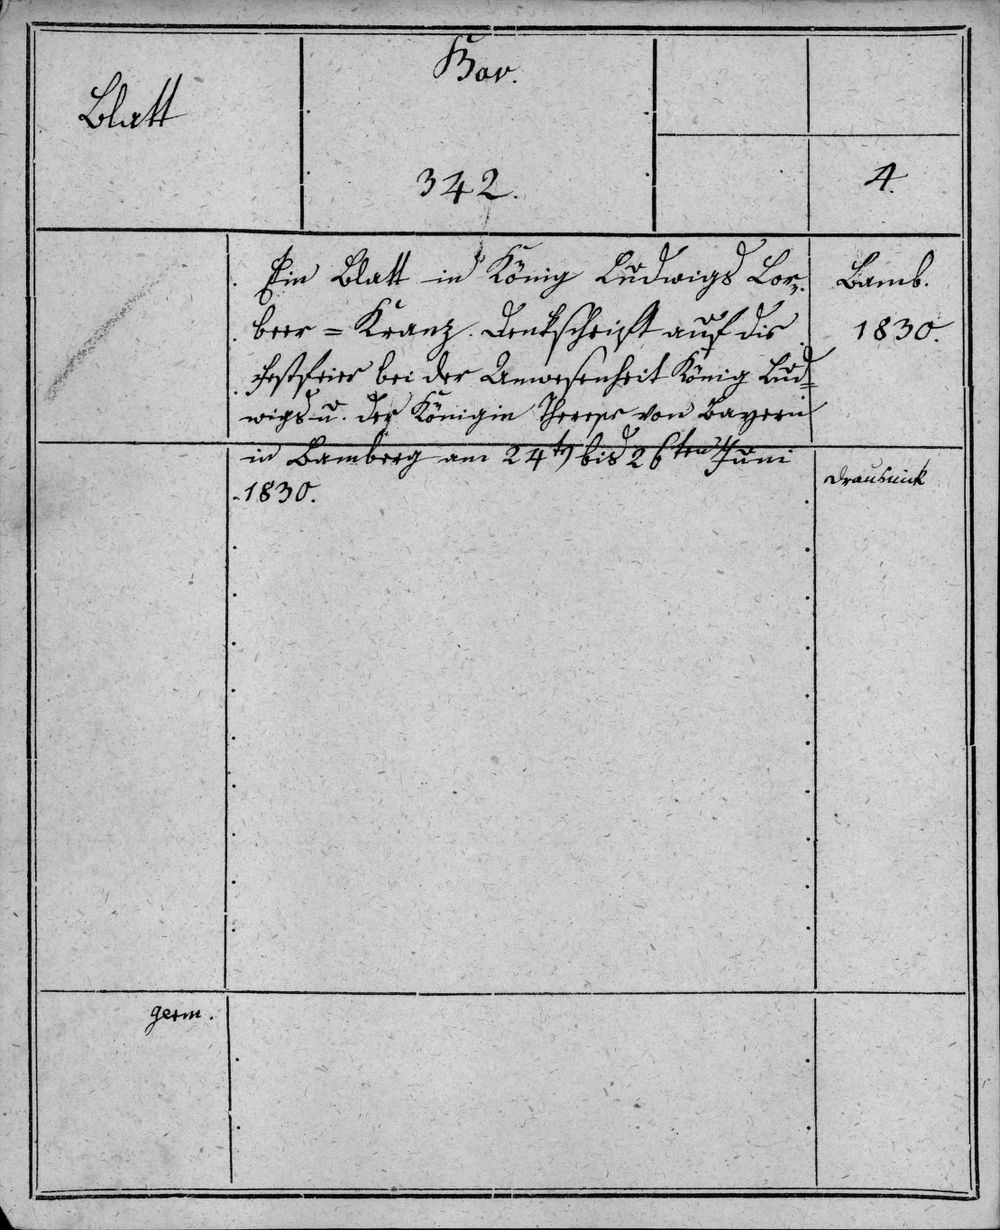 Blatt
Bav.
342.
4.
Ein Blatt in König Ludwigs Lor-
beer=Kranz. Denkschrift auf die
Festfeier bei der Anwesenheit König Lud=
wigs u. der Königin Therese von Bayern
in Bamberg am 24ten bis 26ten Juni
1830.
Bamb.
1830.
Drausnick
germ.